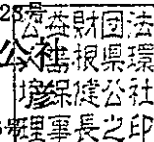 28号
公益財団法
公社島根県環
境保健公社
理事長之印